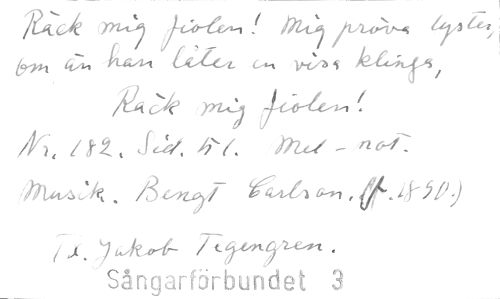 Räck mig fiolen! Mig pröva lyster,
om än han låter en visa klinga,
Räck mig fiolen!
Nr. 182. Sid. 151. Mel - not.
Musik. Bengt Carlson. (f. 1890.)
Td. Jakob Tegengren.
Sångarförbundet 3